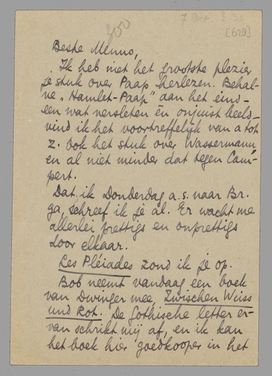 200
[628]
Beste Menno,
Ik heb met het grootste plezier
je stuk over Paap herlezen. Behal-
ve „Hamlet-Paap” aan het eind -
een wat versleten en onjuist beeld -
vind ik het voortreffelijk van a tot
z. Ook het stuk over Wassermann,
en al niet minder dat tegen Cam-
pert.
Dat ik Donderdag a.s. naar Br.
ga, schreef ik je al. Er wacht me
allerlei prettigs en onprettigs
door elkaar.
Les Pléiades zond ik je op.
Bob neemt vandaag een boek
van Dwinger mee, Zwischen Weiss
und Rot. De Gothische letter er-
van schrikt mij af, en ik kan
het boek hier goedkooper in het